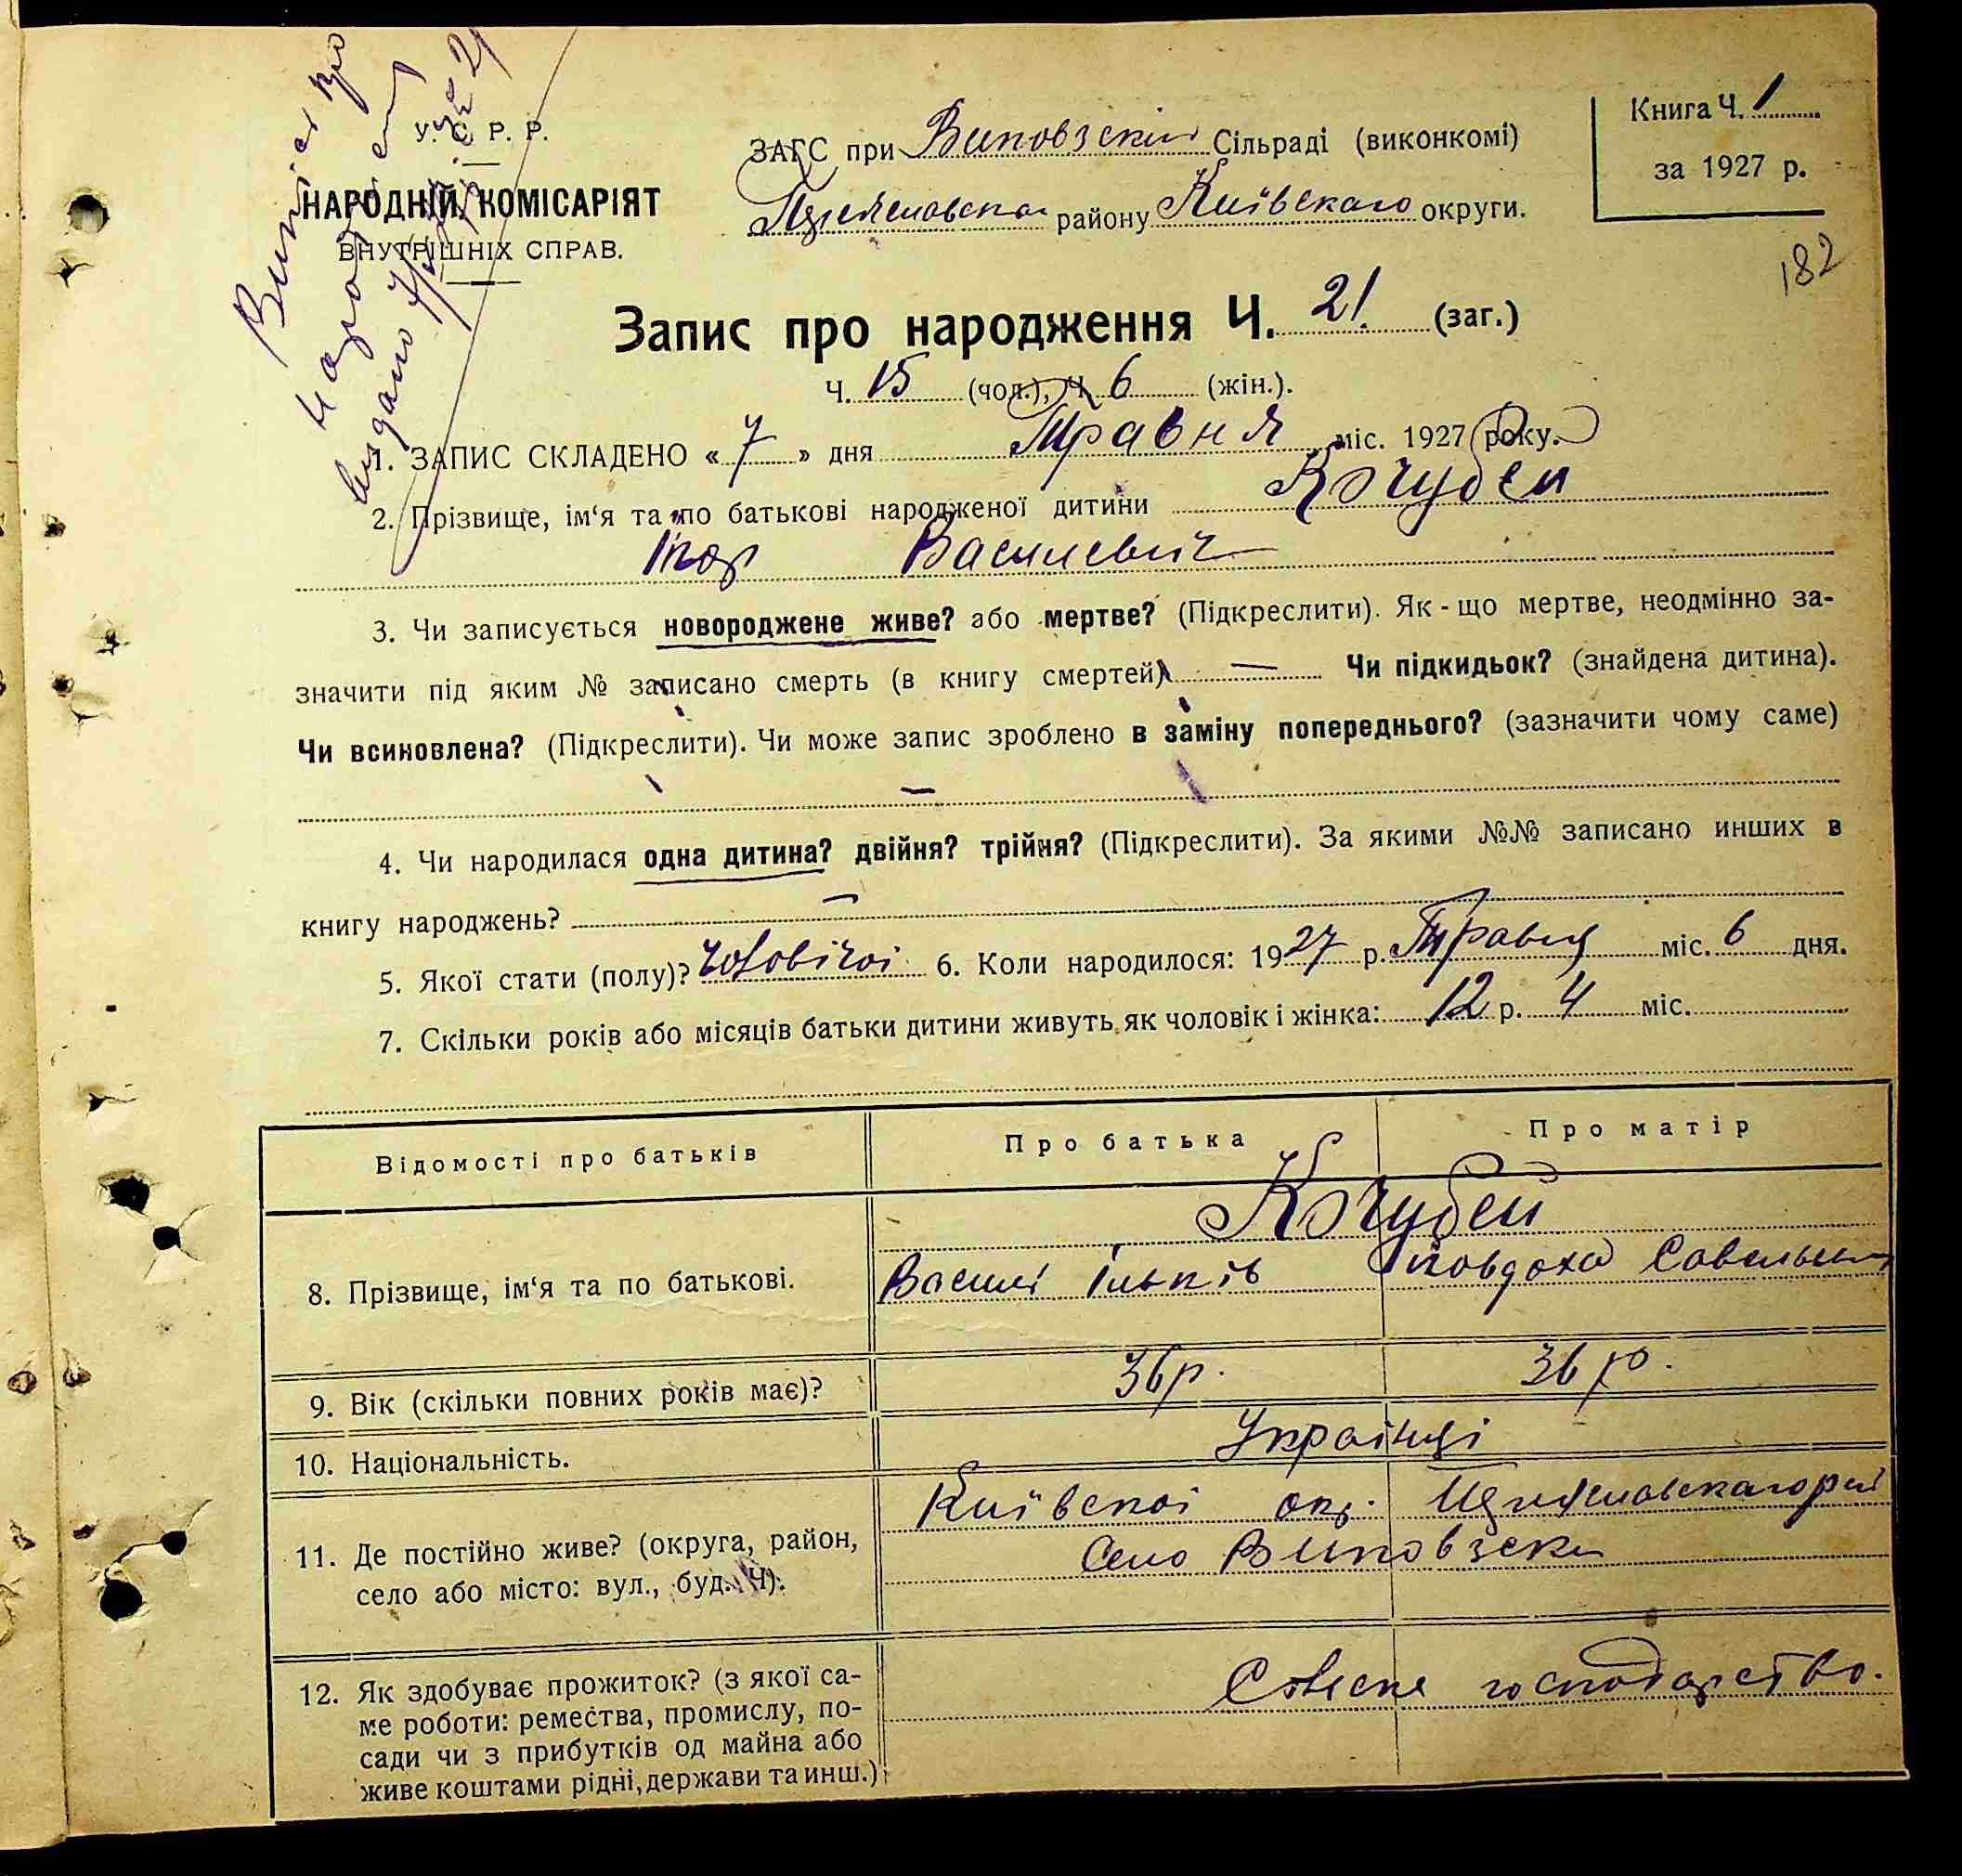 Витіг про
У. С. Р. Р.
НАРОДНІЙ КОМІСАРІЯТ
ВНУТРІШНІХ СПРАВ.
видано
ЗАГС при Виповзскій Сільраді (виконкомі)
району Київскаго округи.
Книга Ч. 1
за 1927 р.
182
Запис про народження Ч. 21. (заг.)
Ч. 15 (чол.), Ч. 6 (жін.).
1. ЗАПИС СКЛАДЕНО « 7 » дня Травня міс. 1927 року.
2. Прізвище, ім‘я та по батькові народженої дитини Кочубей
Василевич
3. Чи записується новороджене живе? або мертве? (Підкреслити). Як - що мертве, неодмінно за-
значити під яким № записано смерть (в книгу смертей) — Чи підкидьок? (знайдена дитина).
Чи всиновлена? (Підкреслити). Чи може запис зроблено в заміну попереднього? (зазначити чому саме)
—
4. Чи народилася одна дитина? двійня? трійня? (Підкреслити). За якими №№ записано инших в
книгу народжень? —
5. Якої стати (полу)? Чоловічоі 6. Коли народилося: 1927 р. Травня міс. 6 дня.
7. Скільки років або місяців батьки дитини живуть як чоловік і жінка: 12 р. 4 міс.
Відомості про батьків Про батька Про матір
Кочубей
8. Прізвище, ім‘я та по батькові. Василі Ільків Явдоха
9. Вік (скільки повних років має)? 36 р. 36 р.
10. Національність. Українці
Київскоі окр.
11. Де постійно живе? (округа, район, Село Виповзски
село або місто: вул., буд. Ч).
12. Як здобуває прожиток? (з якої са- господарство.
ме роботи: ремества, промислу, по-
сади чи з прибутків од майна або
живе коштами рідні, держави та инш.)